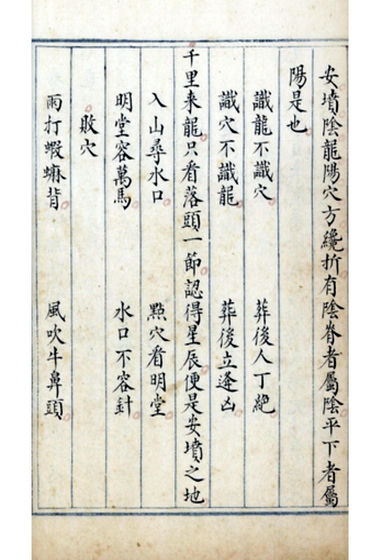 安墳陰龍陽穴方纔折有陰脊者屬陰平下者屬
陽是也
識龍不識穴 葬後人丁絶
識穴不識龍 葬後立逢凶
千里来龍只看落頭一節認得星辰便是安墳之地
入山尋水口 點穴看明堂
明堂容萬馬 水口不容針
敗穴
雨打蝦蟆背 風吹牛鼻頭